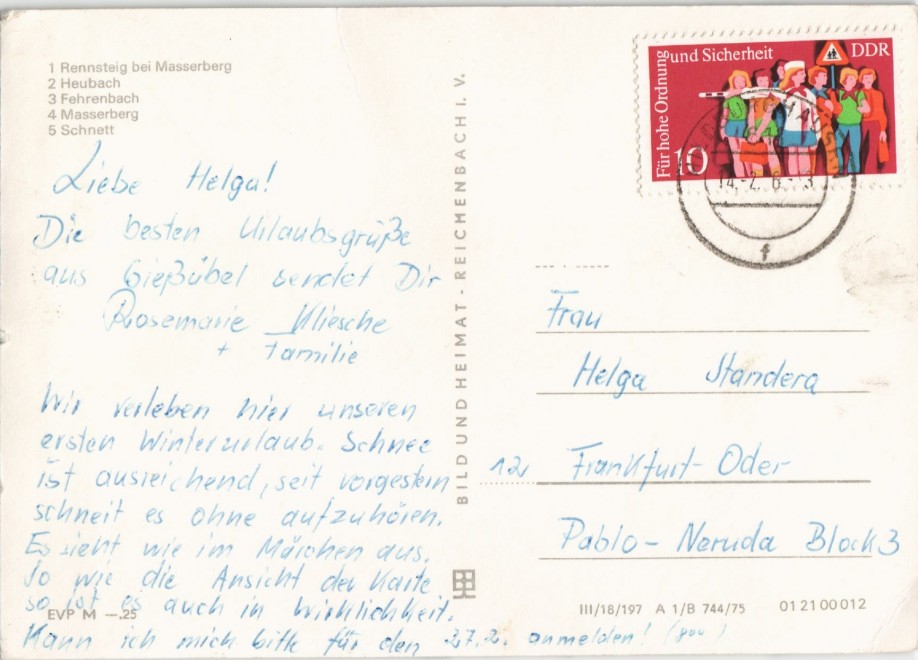 1 Rennsteig bei Masserberg
2 Heubach
3 Fehrenbach
4 Masserberg
5 Schnett
Liebe Helga!
Die besten Urlaubsgrüße
aus Gießübel sendet Dir
Rosemarie Kliesche
+ Familie
Wir verleben hier unseren
ersten Winterurlaub. Schnee
ist ausreichend, seit vorgestern
schneit es ohne aufzuhören.
Es sieht wie im Märchen aus.
So wie die Ansicht der Karte
so ist es auch in Wirklichkeit.
Kann ich mich bitte für den 27.2. anmelden!
EVP M —.25
BILD UND HEIMAT · REICHENBACH I. V.
Für hohe Ordnung
und Sicherheit
DDR
10
14.-2.
f
Frau
Helga Standera
12 Frankfurt-Oder
Pablo-Neruda Block 3
III/18/197 A 1/B 744/75 01 21 00 012